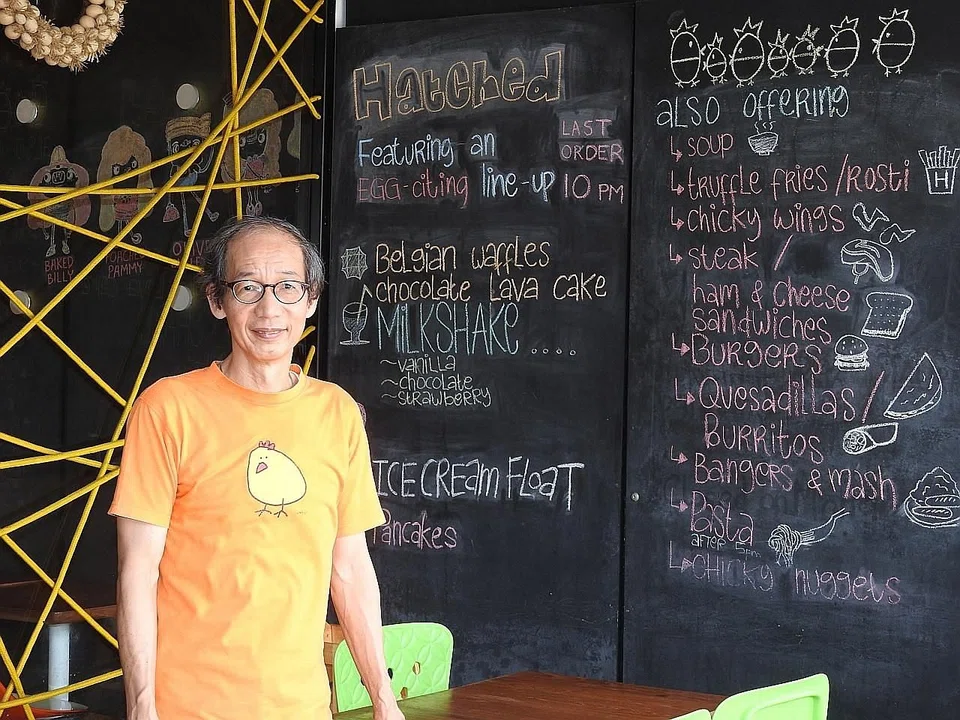 BAKED
BILLY
POACHED
PAMMY
Hatched
Featuring an
EGG-citing line-up
LAST
ORDER
10 PM
Belgian waffles
chocolate Lava cake
MILKSHAKE ....
~vanilla
~chocolate
~strawberry
ICE CREAM FLOAT
Pancakes
also offering
soup
truffle fries / Rosti
H
chicky wings
steak /
ham & cheese
sandwiches
Burgers
Quesadillas /
Burritos
Bangers & mash
Pasta
AFTER 5pm
CHICKY nuggets